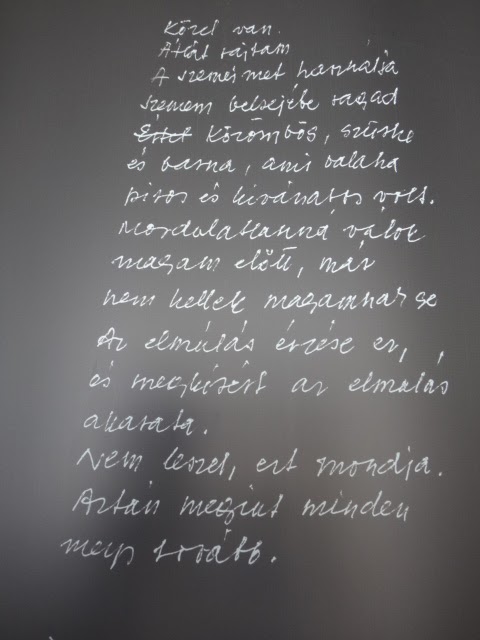 Közel van.
Átlát rajtam
A szemeimet használja
szemem belsejébe ragad
körömbös, szürke
és barna, ami valaha
piros és kívánatos volt.
Mozdulatlanná válok
magam előtt, már
nem kellek magamnak se
Az elmúlás érzése ez,
és megkísért az elmúlás
akarata.
Nem leszel, ezt mondja.
Aztán megint minden
megy tovább.